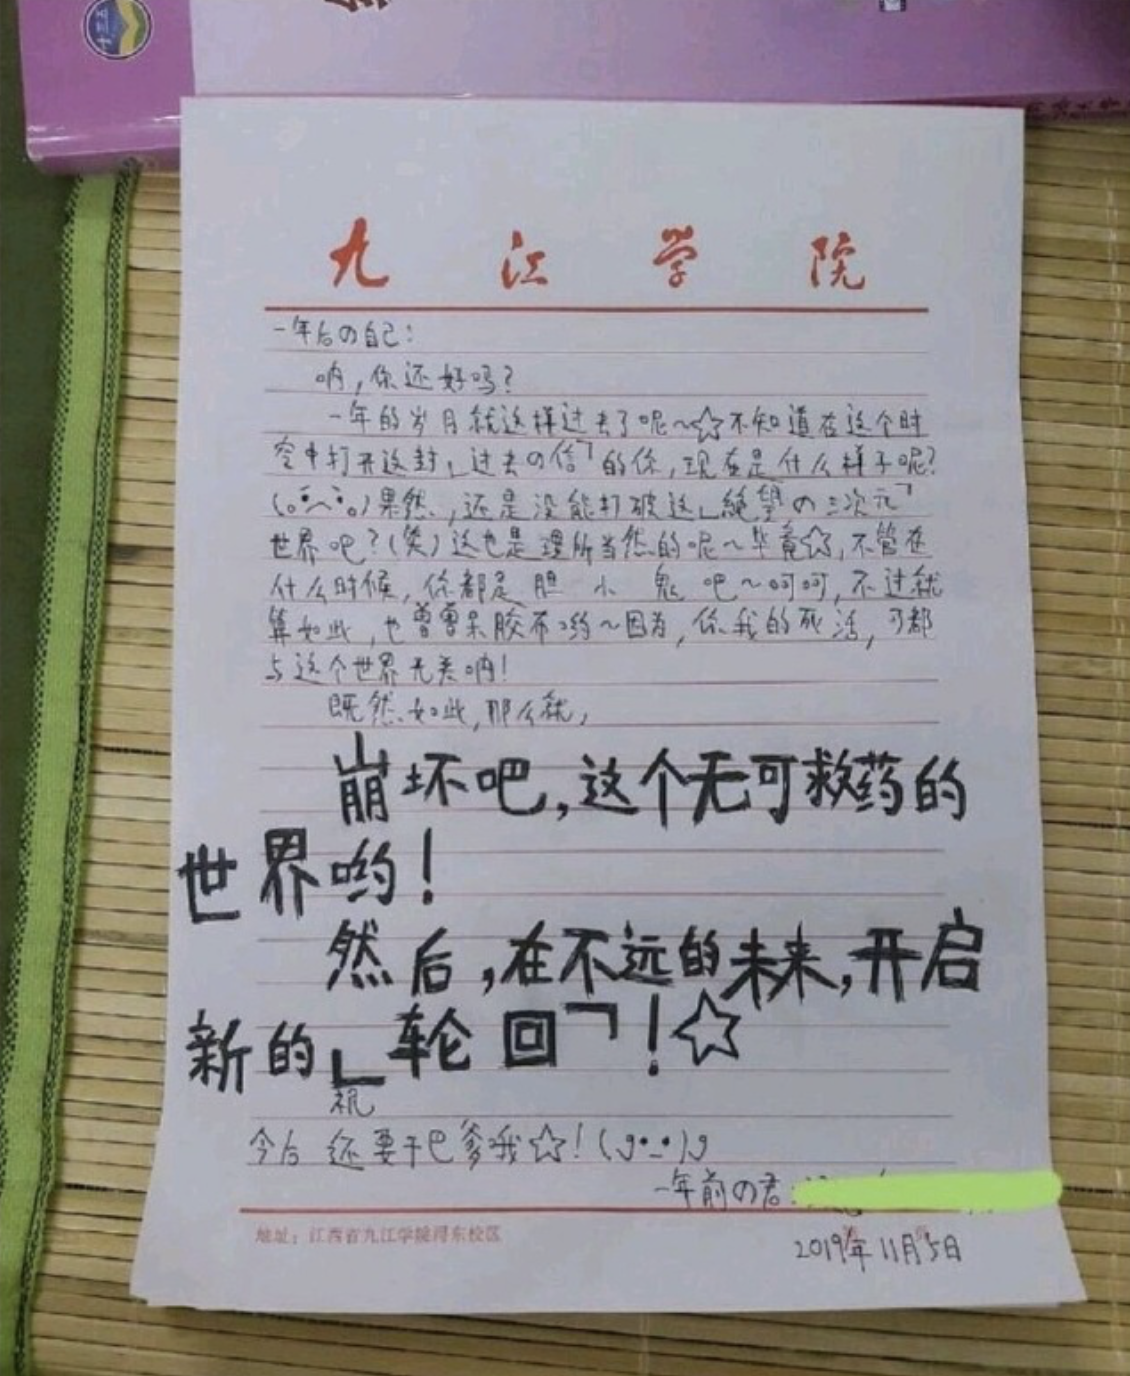 十三五
九江学院
一年后の自己：
呐，你还好吗？
一年的岁月就这样过去了呢～☆不知道在这个时
空中打开这封「过去の信」的你，现在是什么样子呢？
果然，还是没能打破这「絶望の三次元」
世界吧？（笑）这也是理所当然的呢～毕竟☆，不管在
什么时候，你都是胆小鬼吧～呵呵，不过就
算如此，也曹曹呆胶布哟～因为，你我的死活，可都
与这个世界无关呐！
既然如此，那么就，
崩坏吧，这个无可救药的
世界哟！
然后，在不远的未来，开启
新的「轮回」！☆
祝
今后还要干巴爹哦☆！
一年前の君：
地址：江西省九江学院浔东校区
2019年11月5日